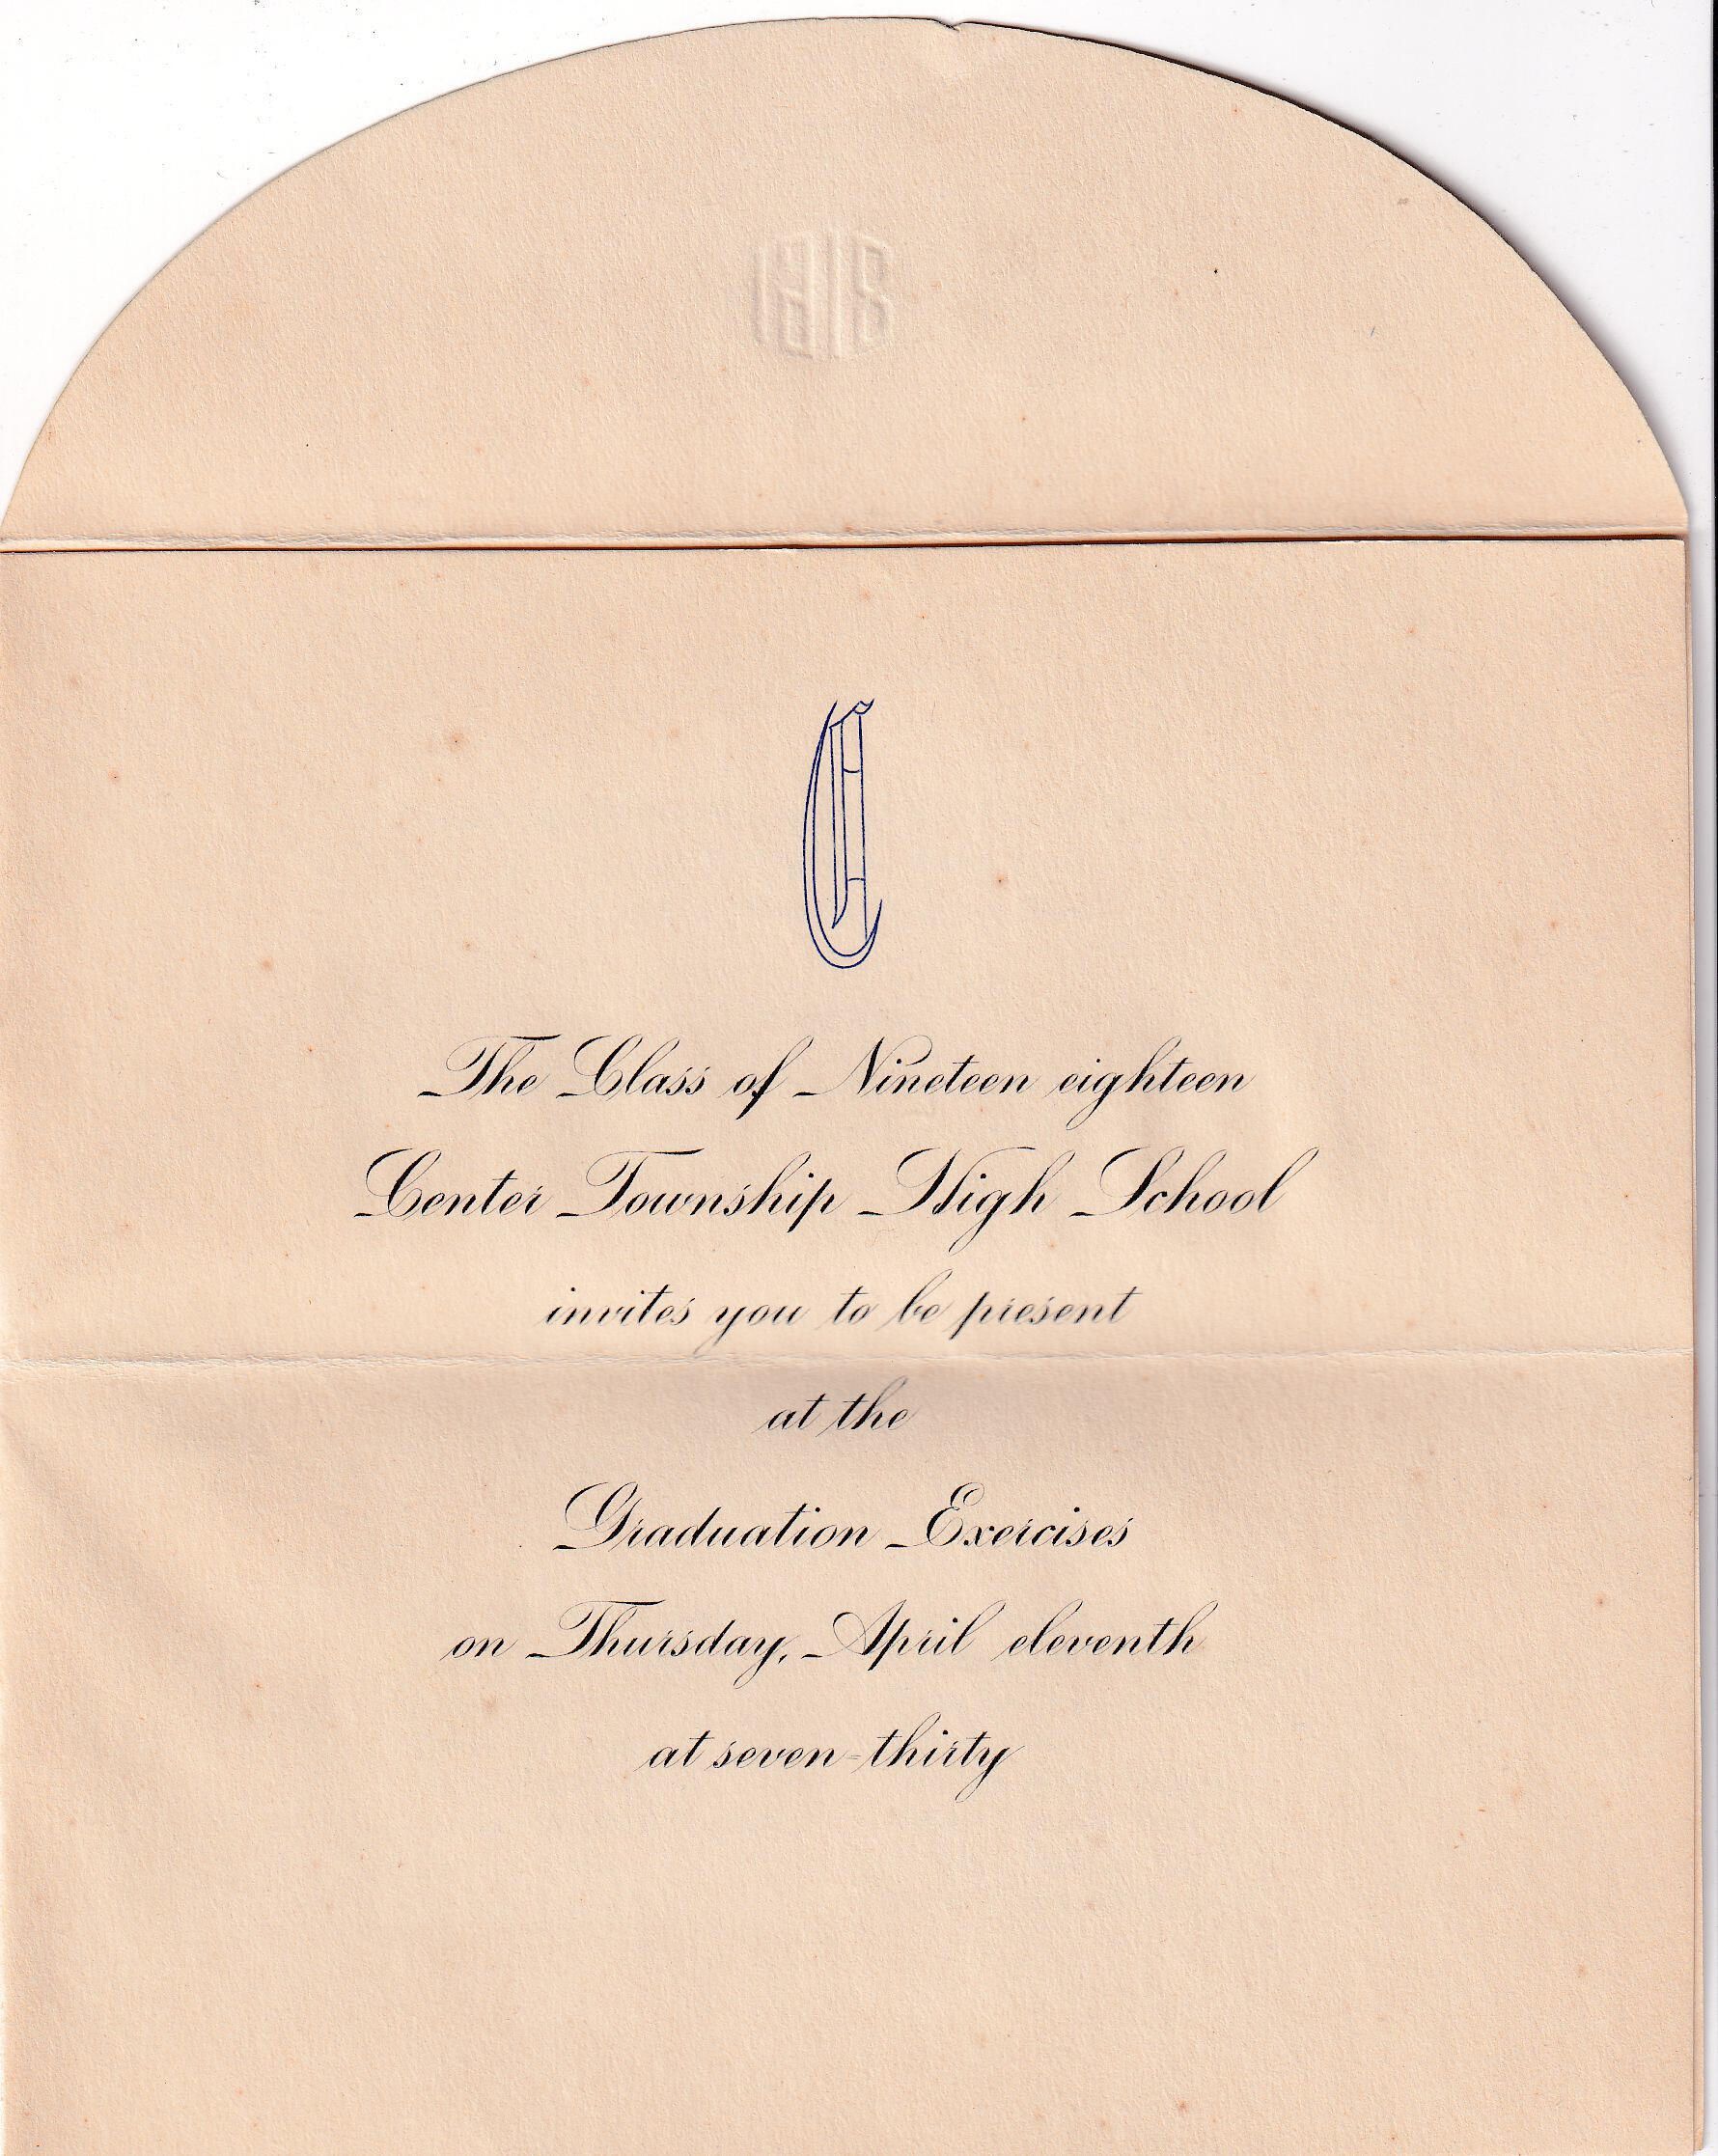 1918
C
The Class of Nineteen eighteen
Center Township High School
invites you to be present
at the
Graduation Exercises
on Thursday, April eleventh
at seven-thirty